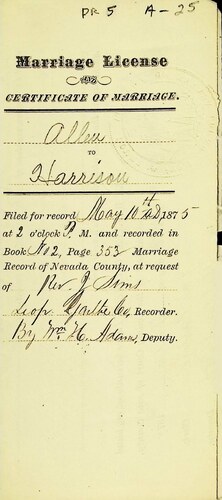 PR 5 A-25
Marriage License
AND
CERTIFICATE OF MARRIAGE.
Allen
TO
Harrison
Filed for record May 10th A.D. 1875
at 2 o'clock P. M. and recorded in
Book No 2, Page 353 Marriage
Record of Nevada County, at request
of Rev. J Sims
Co, Recorder.
By Wm H. Adams, Deputy.